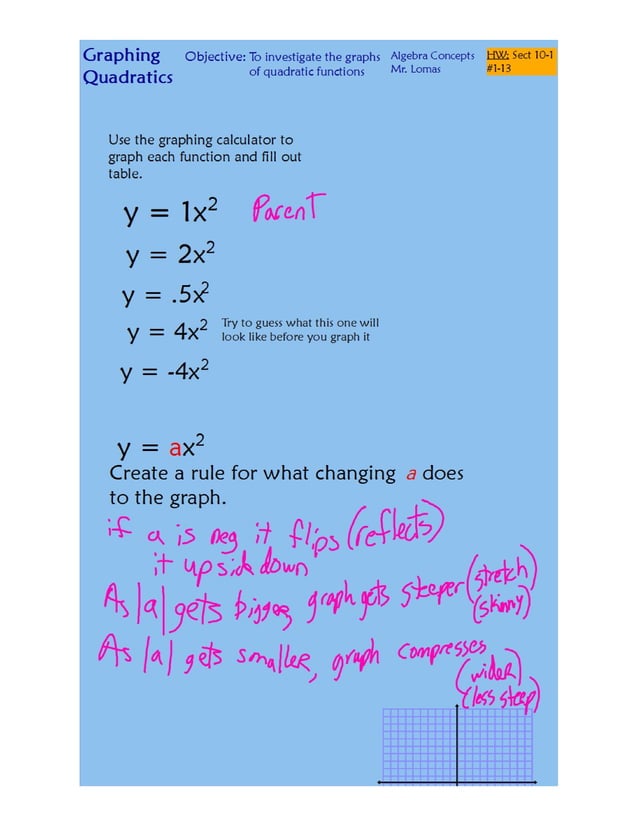 Graphing
Quadratics
Objective: To investigate the graphs
of quadratic functions
Algebra Concepts
Mr. Lomas
HW: Sect 10-1
#1-13
Use the graphing calculator to
graph each function and fill out
table.
y = 1x² Parent
y = 2x²
y = .5x²
y = 4x² Try to guess what this one will
look like before you graph it
y = -4x²
y = ax²
Create a rule for what changing a does
to the graph.
if a is neg it flips (reflects)
it upside down
As |a| gets bigger, graph gets steeper (stretch)
(skinny)
As |a| gets smaller, graph compresses
(wider)
(less steep)